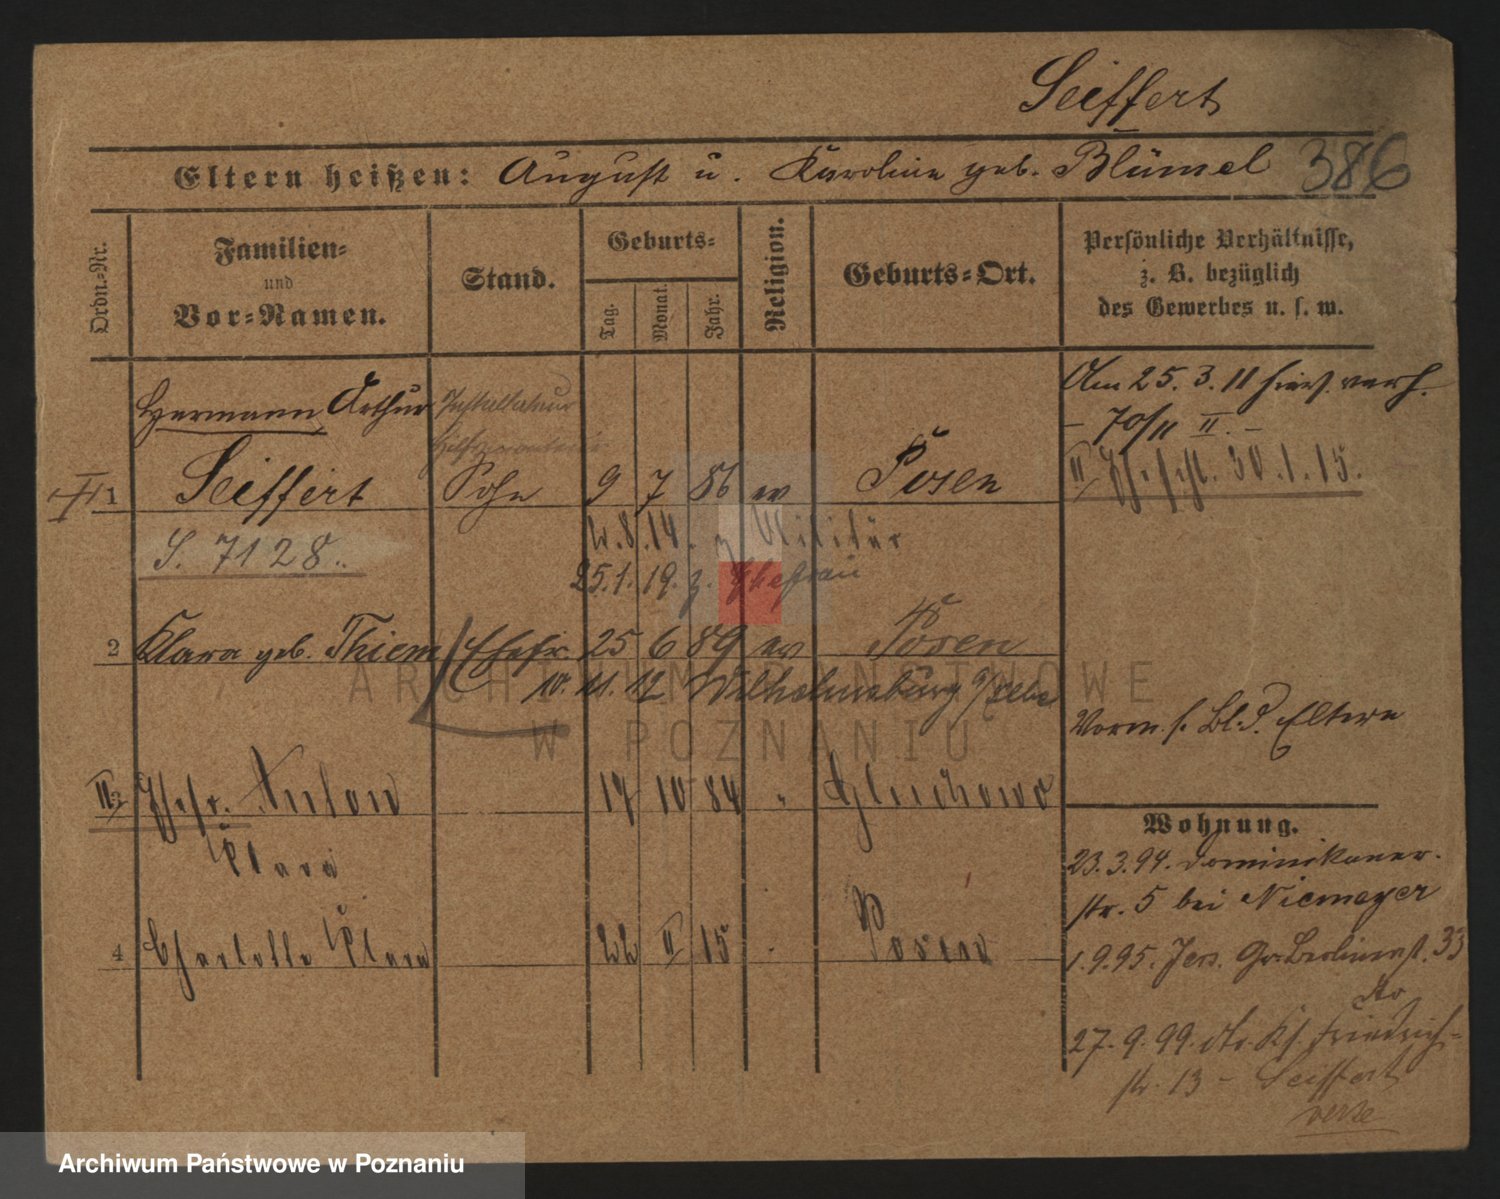 Seiffert
Eltern heißen: August u. Karoline geb. Blümel 386
Ordn.-Nr.
Familien- und Vor-Namen.
Stand.
Geburts-
Tag.
Monat.
Jahr.
Religion.
Geburts-Ort.
Persönliche Verhältnisse,
z. B. bezüglich
des Gewerbes u. s. w.
Hermann Arthur Installateur
1 Seiffert Sohn 9 7 86 ev Posen
Am 25. 3. 11 hier verh.
- 70/11 II. -
II Ehe schl. 30.1.15.
S. 7128.
2.8.14. z Militär
25.1.19. z. Ehefrau
2 Klara geb. Thiem Ehefr. 25 6 89 ev Posen
10. 11. 12 Wilhelmsburg a/Elbe
Vorm. s. Bl. d. Eltern
II 3 Ehefr. Anton 17 10 84 " Gluchowo
Klara
4 Charlotte Klara 22 II 15 Posen
Wohnung.
23.3.94. Dominikaner-
str. 5 bei Niemeyer
1.9.95. Jers. Gr. Berlinerst. 33
dto
27.9.99. dto. Ks. Friedrich-
str. 13 - Seiffert
verte
ARCHIWUM PAŃSTWOWE
W POZNANIU
Archiwum Państwowe w Poznaniu